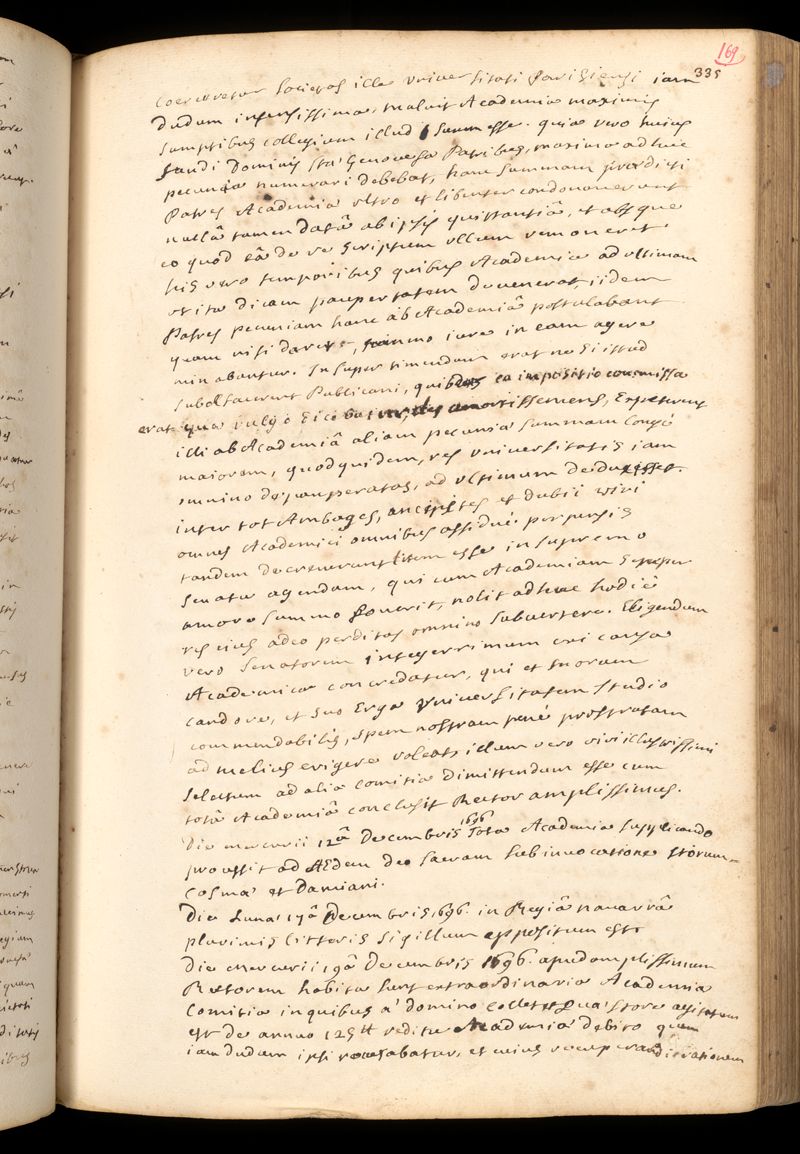 169
335
coerceretur Societas illa Universitati Parisiensi iam
dudum infensissima, maluit Academia maximis
sumptibus collegium illud suum esse. quia vero huius
fundi Dominis Stæ Genovefæ Patribus, maxima adhuc
pecunia numerari debebat, hanc summam prædicti
Patres Academiæ ultro et libenter condonaverunt
nullâ tamen datâ ab ipsis quittantiâ, et absque
eo quod eâ de re scriptum ullum
his vero temporibus quibus Academia ad ultimam
ut ita dicam paupertatem devenerat iidem
Patres pecuniam hanc ab Academiâ postulabant
quam nisi daret, summo iure in eam agere
minabantur. Insuper timendum erat ne si istud
subolfacerent Publicani, quibus ea impositio commissa
erat quæ vulgò dicebatur, des amortissemens, Expeterent
illi ab Academiâ aliam pecuniæ summam longè
maiorem, quod quidem, res universitatis iam
omnino depauperatas, ad ultimum deduxisset.
inter tot Ambages, ancipites et dubii viri
omnes Academici omnibus assiduè perpensis
tandem decreverunt litem esse in supremo
Senatu agendam, qui cum Academiam semper
amore summo foverit, nolit adhuc hodiè
res eius adeo perditas omnino subvertere. Eligendum
vero Senatorem integerrimum cui causa
Academica concredatur, qui et morum
candore, et suo Erga Universitatem studio
commendabilis, spem nostram penè prostratam
ad melius erigere voleat, illum vero viri illustrissimi
selectum ad alia comitia dimittendum esse cum
totâ Academiâ conclusit Rector amplissimus.
Die mercurii 12â Decembris 1696 Tota Academia supplicando
processit ad Ædem deo sacram sub invocatione storum
Cosmæ et Damiani.
Die Lunæ 17â Decembris 1696. in Regiâ navarrâ
plurimis litteris sigillum appositum est
Die Mercurii 19â Decembris 1696. apud amplissimum
Rectorem habita sunt extraordinaria Academiæ
Comitia in quibus a domino Collet quæstore agitatum
est de annuo 125 tt reditu Academiæ debito quem
iam dudum ipsi recusabatur, et eius recuperandi rationem